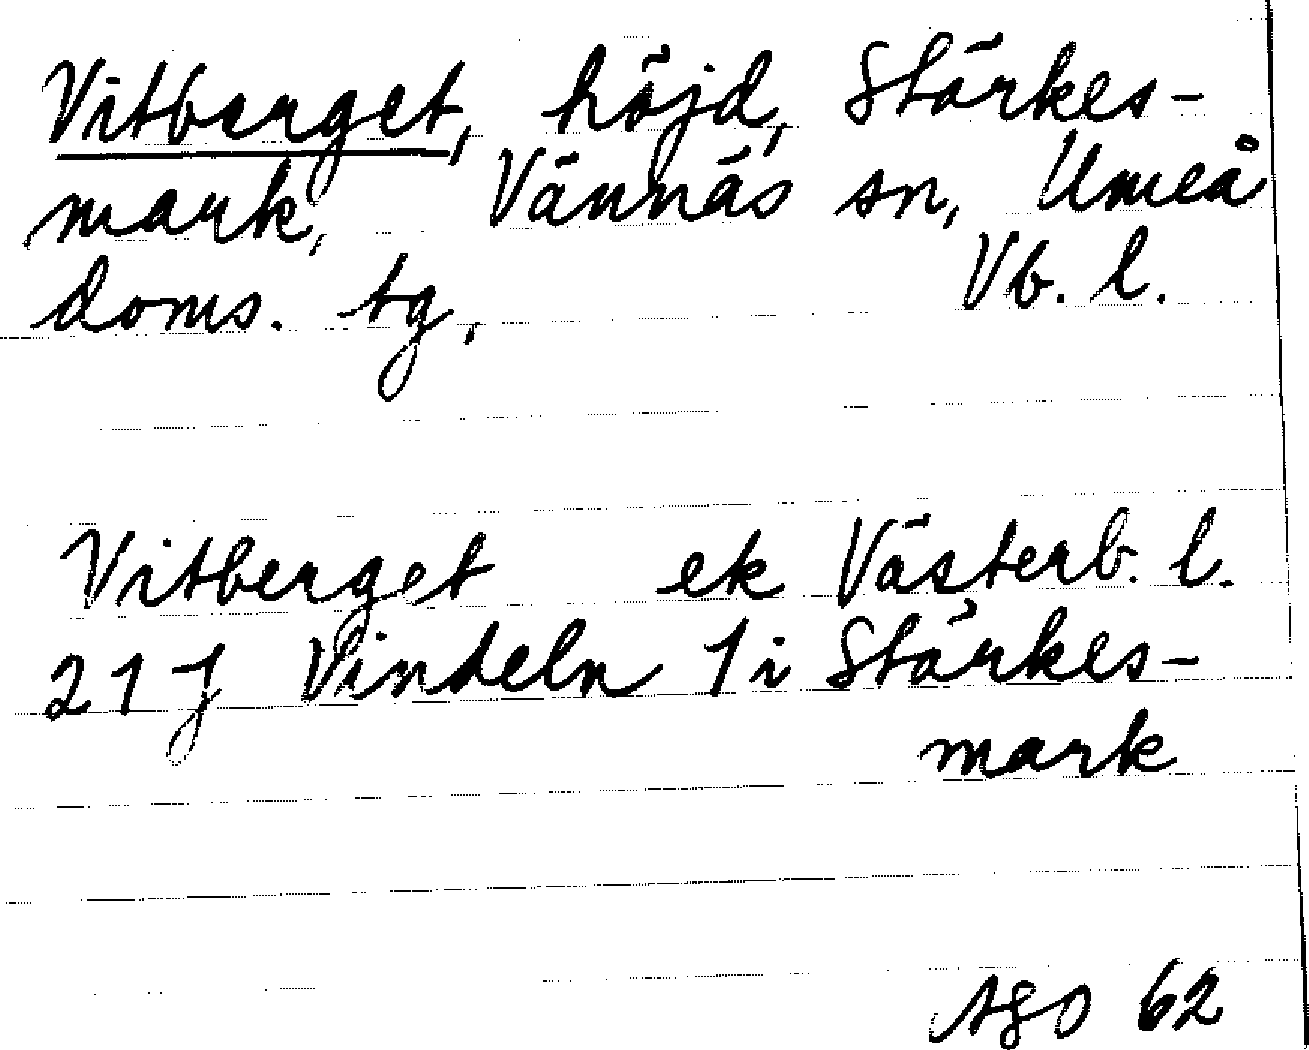 Vitberget, höjd, Stärkes-
mark, Vännäs sn, Umeå
doms. tg, Vb. l.
Vitberget ek Västerb. l.
21 J Vindeln 1 i Stärkes-
mark
ÅGO 62